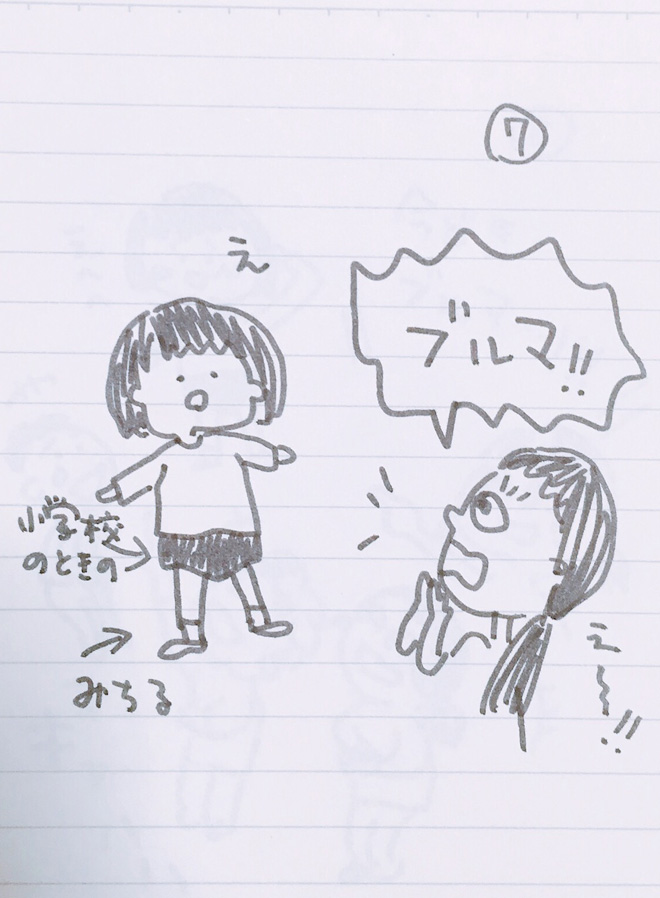 ⑦
え
ブルマ!!
小学校
のときの
みちる
え〜!!